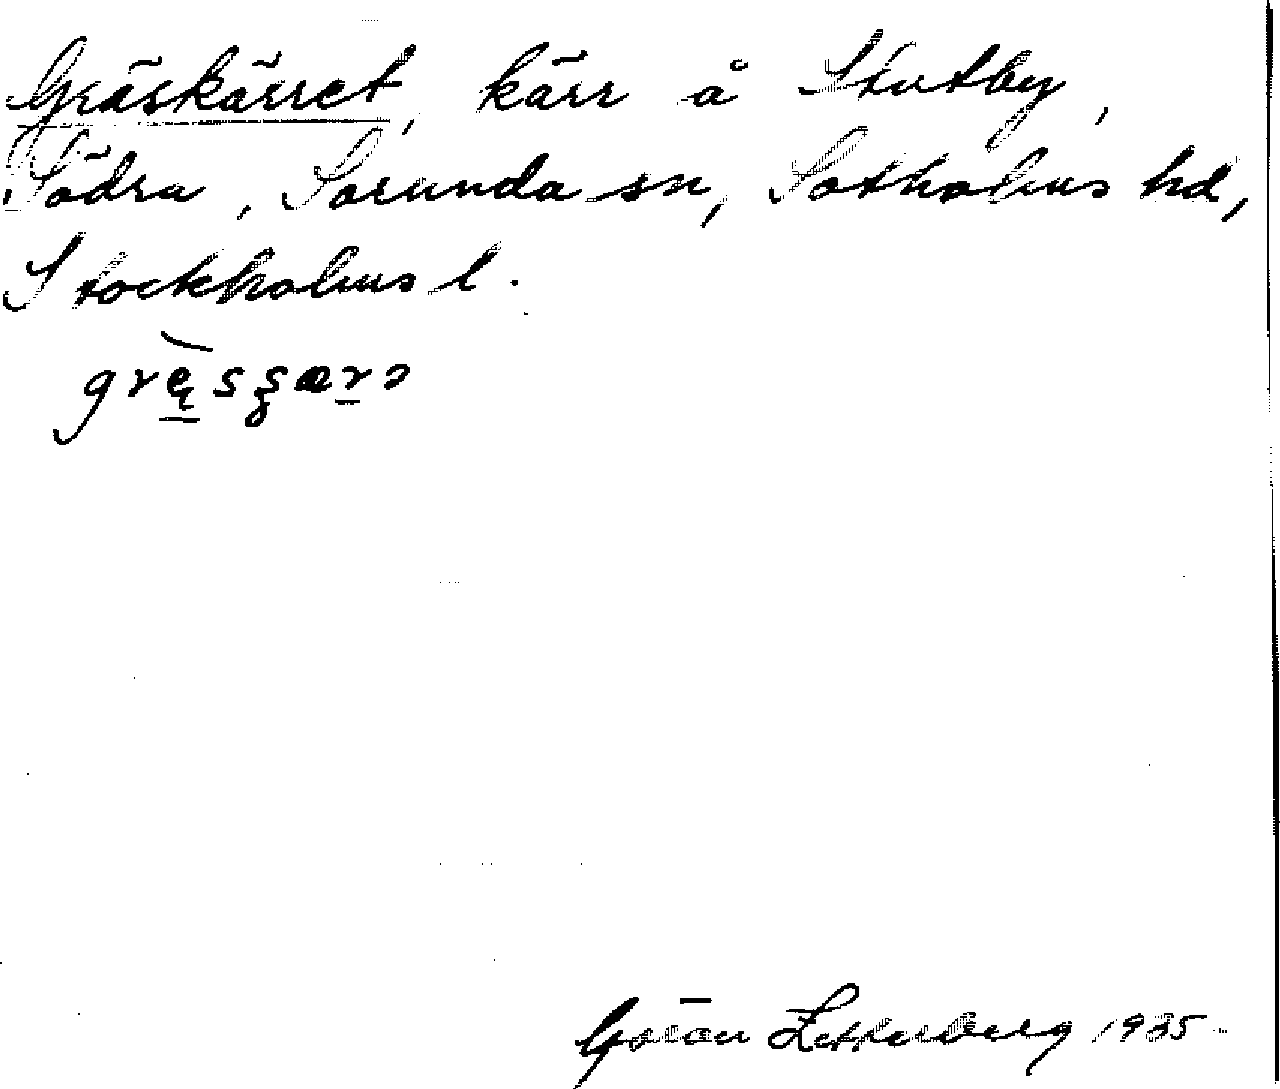 Gräskärret, kärr å Stutby,
Södra, Sorunda sn, Sotholms hd,
Stockholms l.
Göran Zetterberg 1935